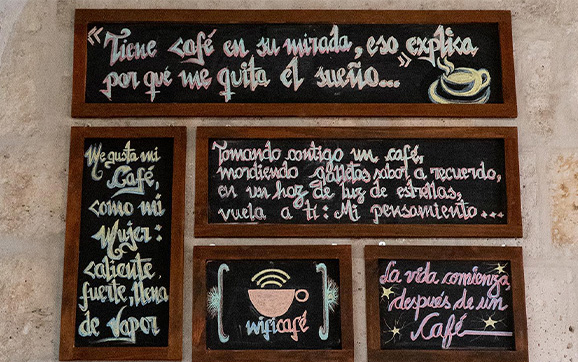 "Tiene café en su mirada, eso explica
por qué me quita el sueño..."
Me gusta mi
Café,
como mi
Mujer:
caliente,
fuerte, llena
de Vapor
Tomando contigo un café,
mordiendo galletas sabor a recuerdo,
en un haz de luz de estrellas,
vuela a ti: Mi pensamiento...
wificafé
La vida comienza
después de un
Café